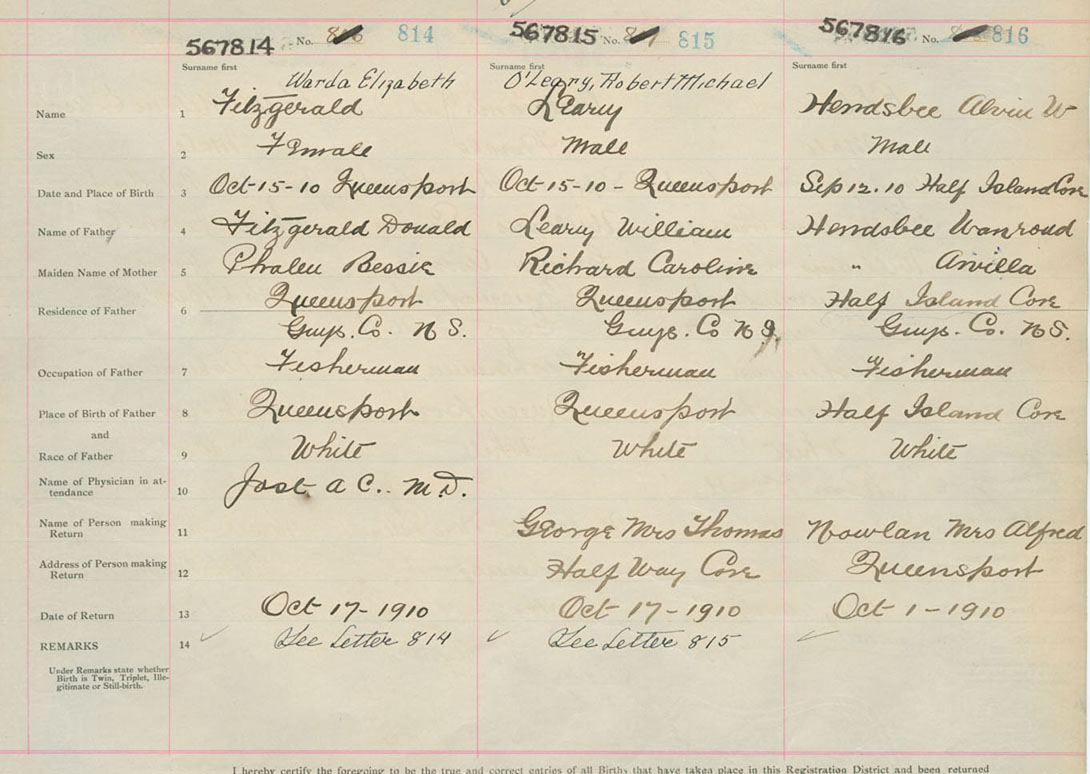 567814 No. 814 567815 No. 815 567816 No. 816
Surname first Surname first Surname first
Warda Elizabeth O'Leary, Robert Michael
Name 1 Fitzgerald Leary Hendsbee Alvin W
Sex 2 Female Male Male
Date and Place of Birth 3 Oct-15-10 Queensport Oct-15-10 - Queensport Sep 12.10 Half Island Cove
Name of Father 4 Fitzgerald Donald Leary William Hendsbee Wanroud
Maiden Name of Mother 5 Phalen Bessie Richard Caroline " Arvilla
Residence of Father 6 Queensport Queensport Half Island Cove
Guys. Co. N S. Guys. Co N S. Guys. Co. N S.
Occupation of Father 7 Fisherman Fisherman Fisherman
Place of Birth of Father 8 Queensport Queensport Half Island Cove
and
Race of Father 9 White White White
Name of Physician in at-
tendance 10 Jost A C.. M.D.
Name of Person making
Return 11 George Mrs Thomas Nowlan Mrs Alfred
Address of Person making
Return 12 Half Way Cove Queensport
Date of Return 13 Oct 17-1910 Oct 17-1910 Oct 1-1910
REMARKS 14 See Letter 814 See Letter 815
Under Remarks state whether
Birth is Twin, Triplet, Ille-
gitimate or Still-birth.
I hereby certify the foregoing to be the true and correct entries of all Births that have taken place in this Registration District and been returned